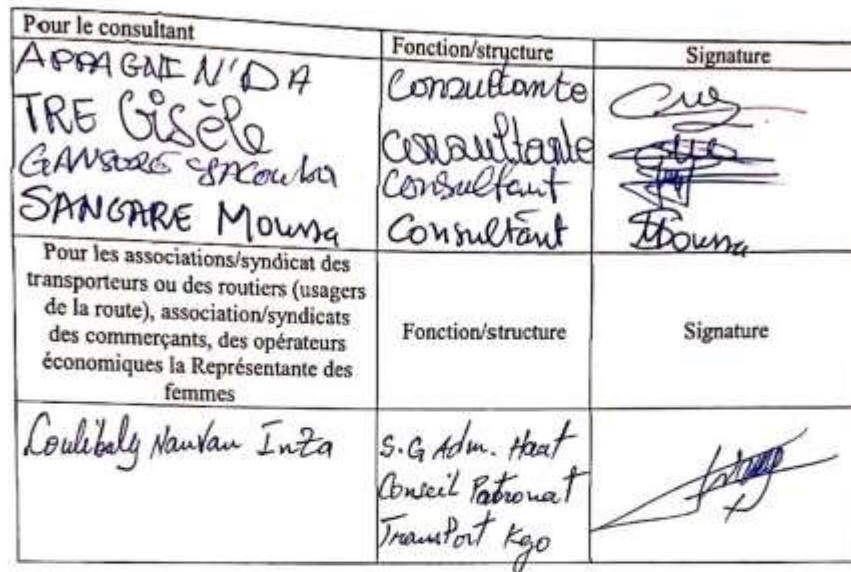 Pour le consultant
Fonction/structure
Signature
APPAGNI N'DA
Consultante
TRE Gisèle
Consultante
GANSORE YACouba
Consultant
SANGARE Moussa
Consultant
Moussa
Pour les associations/syndicat des
transporteurs ou des routiers (usagers
de la route), association/syndicats
des commerçants, des opérateurs
économiques la Représentante des
femmes
Fonction/structure
Signature
Coulibaly Nanvan Inza
S.G Adm. Haut
Conseil Patronat
Transport Kgo